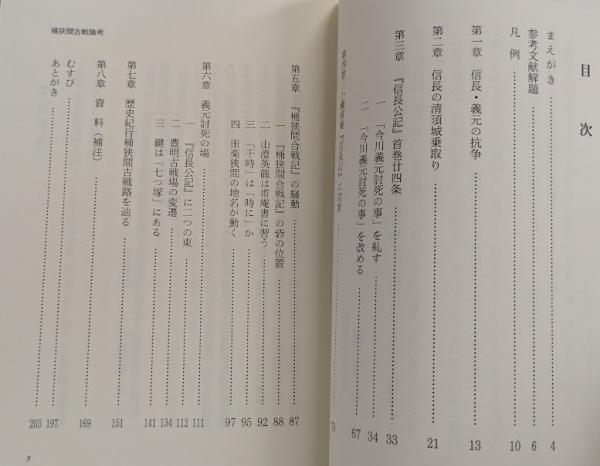 目　次
まえがき 4
参考文献解題 6
凡　例 10
第一章　信長・義元の抗争 13
第二章　信長の清須城乗取り 21
第三章　『信長公記』首巻廿四条 33
一　「今川義元討死の事」を糺す 34
二　「今川義元討死の事」を改める 67
第四章　小瀬甫庵『信長記』の
桶狭間古戦論考
第五章　『桶狭間合戦記』の騒動 87
一　『桶狭間合戦記』の砦の位置 88
二　山澄英龍は甫庵書に習う 92
三　「干時」は「時に」か 95
四　田楽狭間の地名が動く 97
第六章　義元討死の場 111
一　『信長公記』に二つの東 112
二　豊明古戦場の変遷 134
三　鍵は「七つ塚」にある 141
第七章　歴史紀行桶狭間古戦路を辿る 151
第八章　資　料（補注） 169
むすび 197
あとがき 203